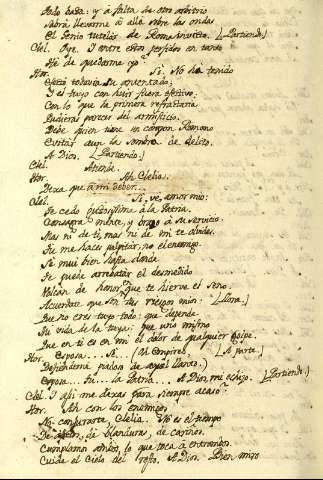 Nado basta: y à falta de otro arbitrio
Sabrá llevarme à ella sobre las ondas
El Genio tutelar de Roma invicta. [Partiendo.]
Clel. Oye. Y entre estos perfidos en tanto
He de quedarme yo?
Hor. Si. No ha tenido
Efecto todavia su atentado;
Y el tuyo con huir fuera efectivo:
Con lo que la primera refractaria
Pudieras parecer del armisticio.
Debe quien tiene un corazon Romano
Evitar aun la sombra de delito.
A Dios. [Partiendo.]
Clel. Atiende.
Hor. Ah Clelia.
Dexa que à mi deber...
Clel. Si, ve, amor mio:
Te cedo gustosisima à la Patria.
Consagra mente, y brazo à su servicio:
Mas no de ti, mas ni de mi te olvides.
Tu me haces palpitar, no el enemigo.
Sé mui bien hasta donde
Te puede arrebatar el desmedido
Volcán de honor que te hierve el seno.
Acuerdate que son tus riesgos mios: [Llora.]
Que no eres tuyo todo: que depende
Mi vida de la tuya; que uno mismo
Que en ti es en mi el dolor de qualquier golpe.
Hor. Esposa... Sè... (Al Empireo, [A parte.]
Defenderia de aquel llanto.)
Esposa... Tu... La Patria... A Dios, mi echizo. [Partiendo.]
Clel. Y asi me dexas para siempre acaso?
Hor. Ah con los enemigos
No conjurarte, Clelia. No es el tiempo
De de blanduras, de cariños.
Cumplamos ambos lo que toca à entrambos.
Cuide el Cielo del resto. A Dios. Bien mio